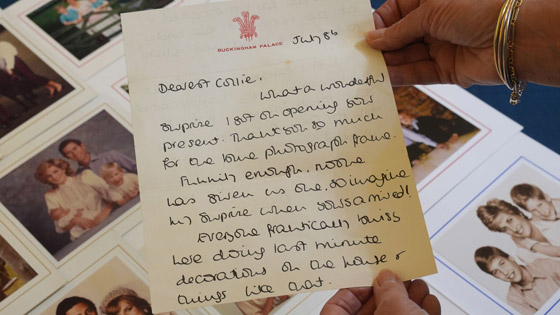 BUCKINGHAM PALACE
July 86
Dearest Collie,
What a wonderful
surprise I got on opening your
present. Thank you so much
for the photograph frame.
Funnily enough, no one
has given us one, so imagine
my surprise when yours arrived!
Everyone frantically busy
here doing last minute
decorations on the house &
things like that.